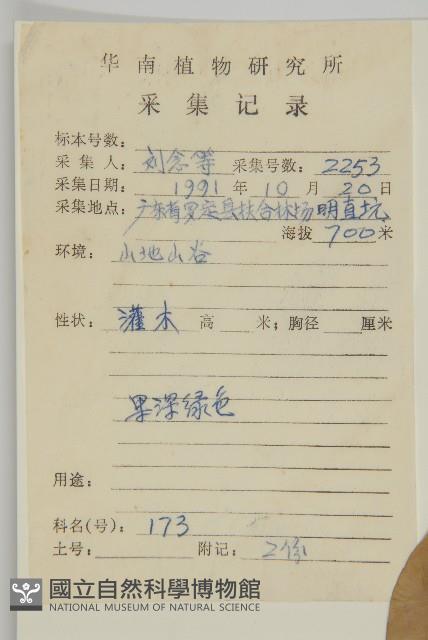 华南植物研究所
采集记录
标本号数：
采集人：刘念等 采集号数：2253
采集日期：1991年10月20日
采集地点：广东省罗定县扶合林场明直坑
海拔700米
环境：山地山谷
性状：灌木 高 米；胸径 厘米
果深绿色
用途：
科名(号)：173
土号： 附记：2份
國立自然科學博物館
NATIONAL MUSEUM OF NATURAL SCIENCE